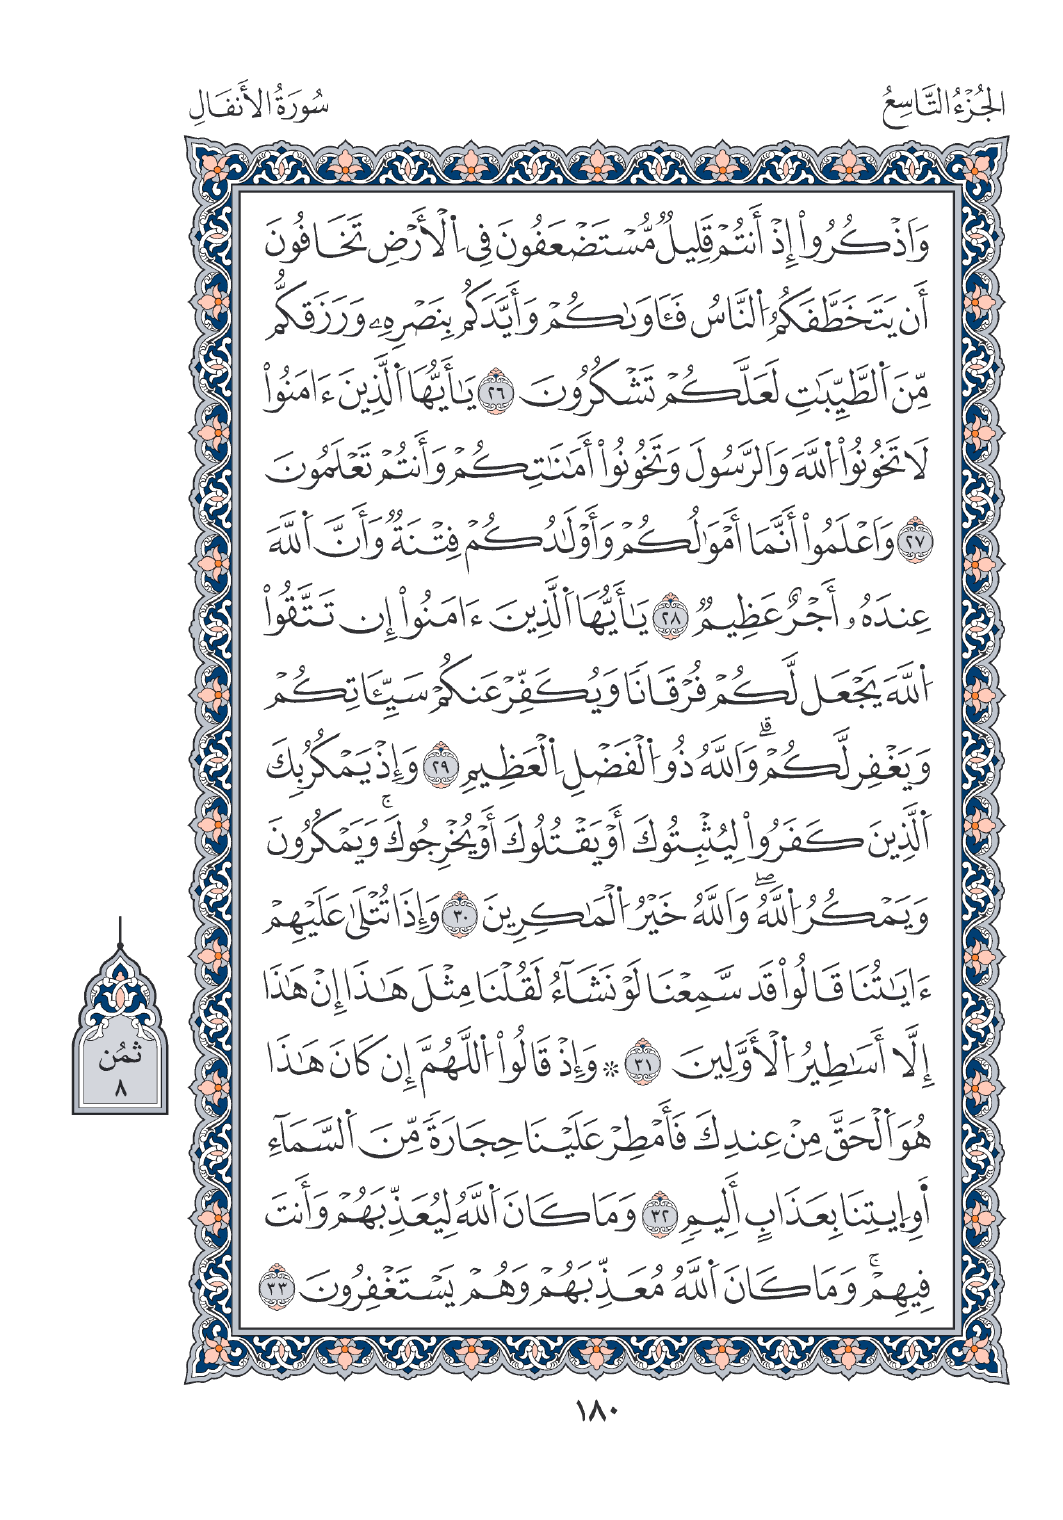 الجُزْءُ التَّاسِعُ
سُورَةُ الأَنفَالِ
وَاَذْكُرُواْ إِذْ أَنتُمْ قَلِيلٌ مُّسْتَضْعَفُونَ فِى اِلْأَرْضِ تَخَافُونَ
أَن يَتَخَطَّفَكُمُ اُلنَّاسُ فَـَٔاوَىٰكُمْ وَأَيَّدَكُم بِنَصْرِهِۦ وَرَزَقَكُم
مِّنَ اَلطَّيِّبَٰتِ لَعَلَّكُمْ تَشْكُرُونَ ٢٦ يَـٰٓأَيُّهَا اَلَّذِينَ ءَامَنُواْ
لَا تَخُونُواْ اُللَّهَ وَالرَّسُولَ وَتَخُونُواْ أَمَٰنَٰتِكُمْ وَأَنتُمْ تَعْلَمُونَ
٢٧ وَاَعْلَمُواْ أَنَّمَا أَمْوَٰلُكُمْ وَأَوْلَٰدُكُمْ فِتْنَةٌ وَأَنَّ اَللَّهَ
عِندَهُۥ أَجْرٌ عَظِيمٌ ٢٨ يَـٰٓأَيُّهَا اَلَّذِينَ ءَامَنُواْ إِن تَتَّقُواْ
اُللَّهَ يَجْعَل لَّكُمْ فُرْقَانًا وَيُكَفِّرْ عَنكُمْ سَيِّـَٔاتِكُمْ
وَيَغْفِر لَّكُمْۗ وَاَللَّهُ ذُو اُلْفَضْلِ اِلْعَظِيمِ ٢٩ وَإِذْ يَمْكُرُ بِكَ
اَلَّذِينَ كَفَرُواْ لِيُثْبِتُوكَ أَوْ يَقْتُلُوكَ أَوْ يُخْرِجُوكَۚ وَيَمْكُرُونَ
وَيَمْكُرُ اُللَّهُۖ وَاَللَّهُ خَيْرُ اُلْمَٰكِرِينَ ٣٠ وَإِذَا تُتْلَىٰ عَلَيْهِمْ
ءَايَٰتُنَا قَالُواْ قَد سَّمِعْنَا لَوْ نَشَآءُ لَقُلْنَا مِثْلَ هَٰذَا إِنْ هَٰذَا
إِلَّا أَسَٰطِيرُ اُلْأَوَّلِينَ ٣١ ۞ وَإِذْ قَالُواْ اُللَّهُمَّ إِن كَانَ هَٰذَا
هُوَ اَلْحَقَّ مِنْ عِندِكَ فَأَمْطِرْ عَلَيْنَا حِجَارَةً مِّنَ اَلسَّمَآءِ
أَوِ اِيتِنَا بِعَذَابٍ أَلِيمٍ ٣٢ وَمَا كَانَ اَللَّهُ لِيُعَذِّبَهُمْ وَأَنتَ
فِيهِمْۚ وَمَا كَانَ اَللَّهُ مُعَذِّبَهُمْ وَهُمْ يَسْتَغْفِرُونَ ٣٣
ثُمُن
٨
١٨٠